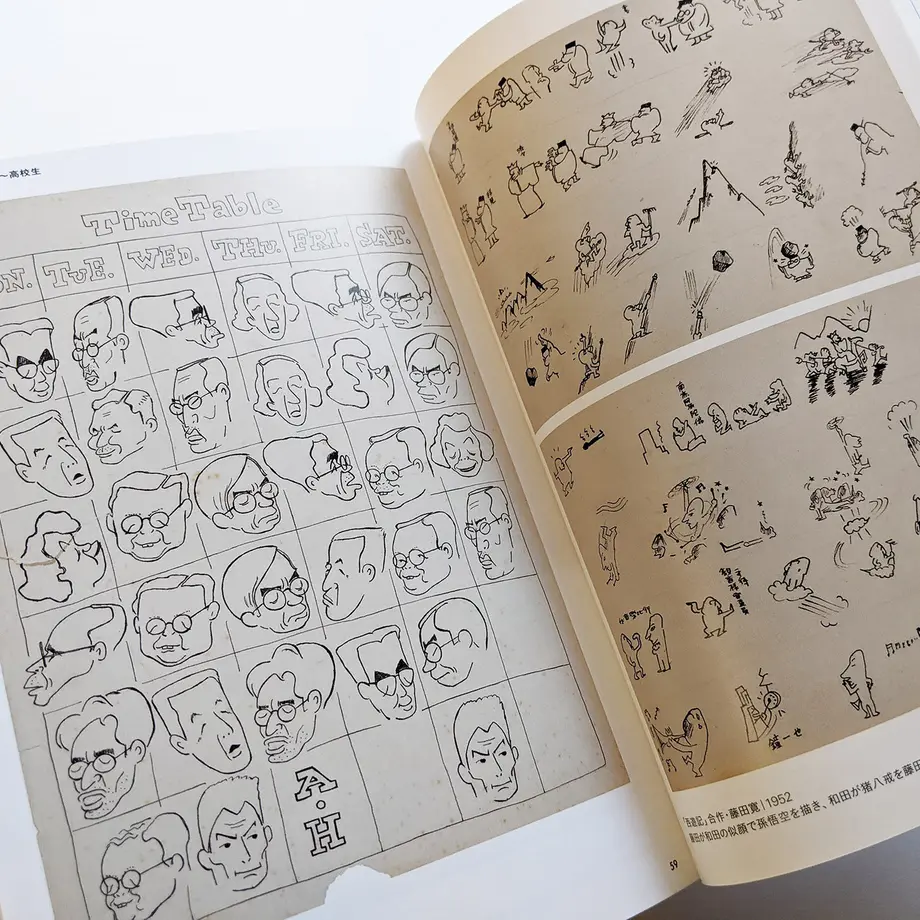 〜高校生
Time Table
ON. TUE. WED. THU. FRI. SAT.
A・H
59
「西遊記」合作・藤田寛｜1952
藤田が和田の似顔で孫悟空を描き、和田が猪八戒を藤田